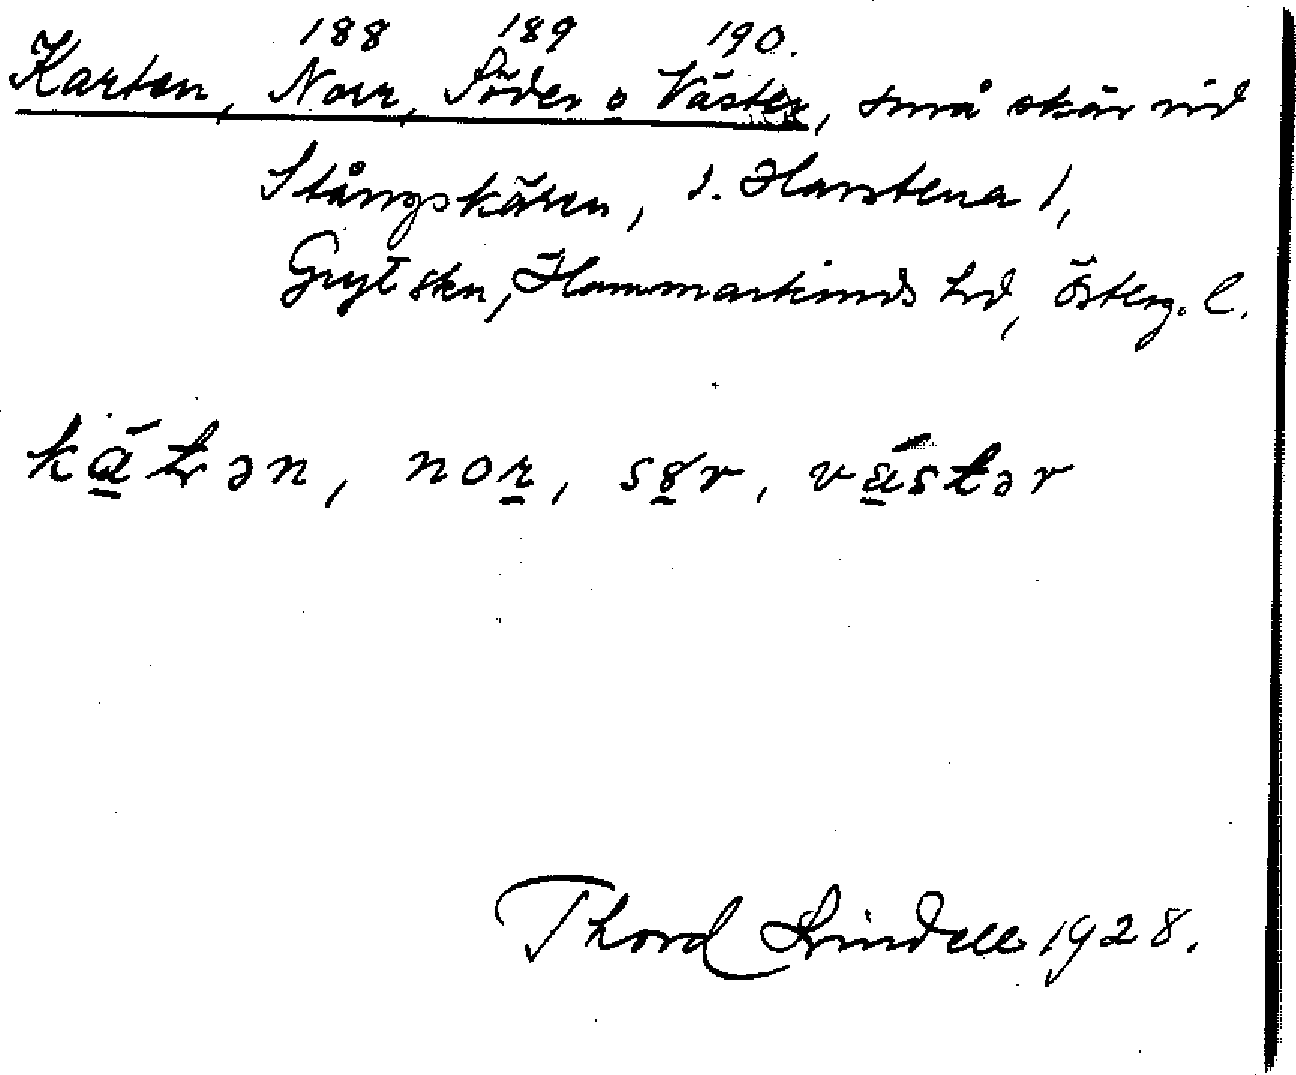 188 189 190.
Karten, Norr, Söder o Väster, små skär vid
Stångskären, s. Harstena 1,
Gryt skn, Hammarkinds hd, Österg. l.
kạ̄tən, nor̠, sør, vä́stər
Thord Lindell 1928.